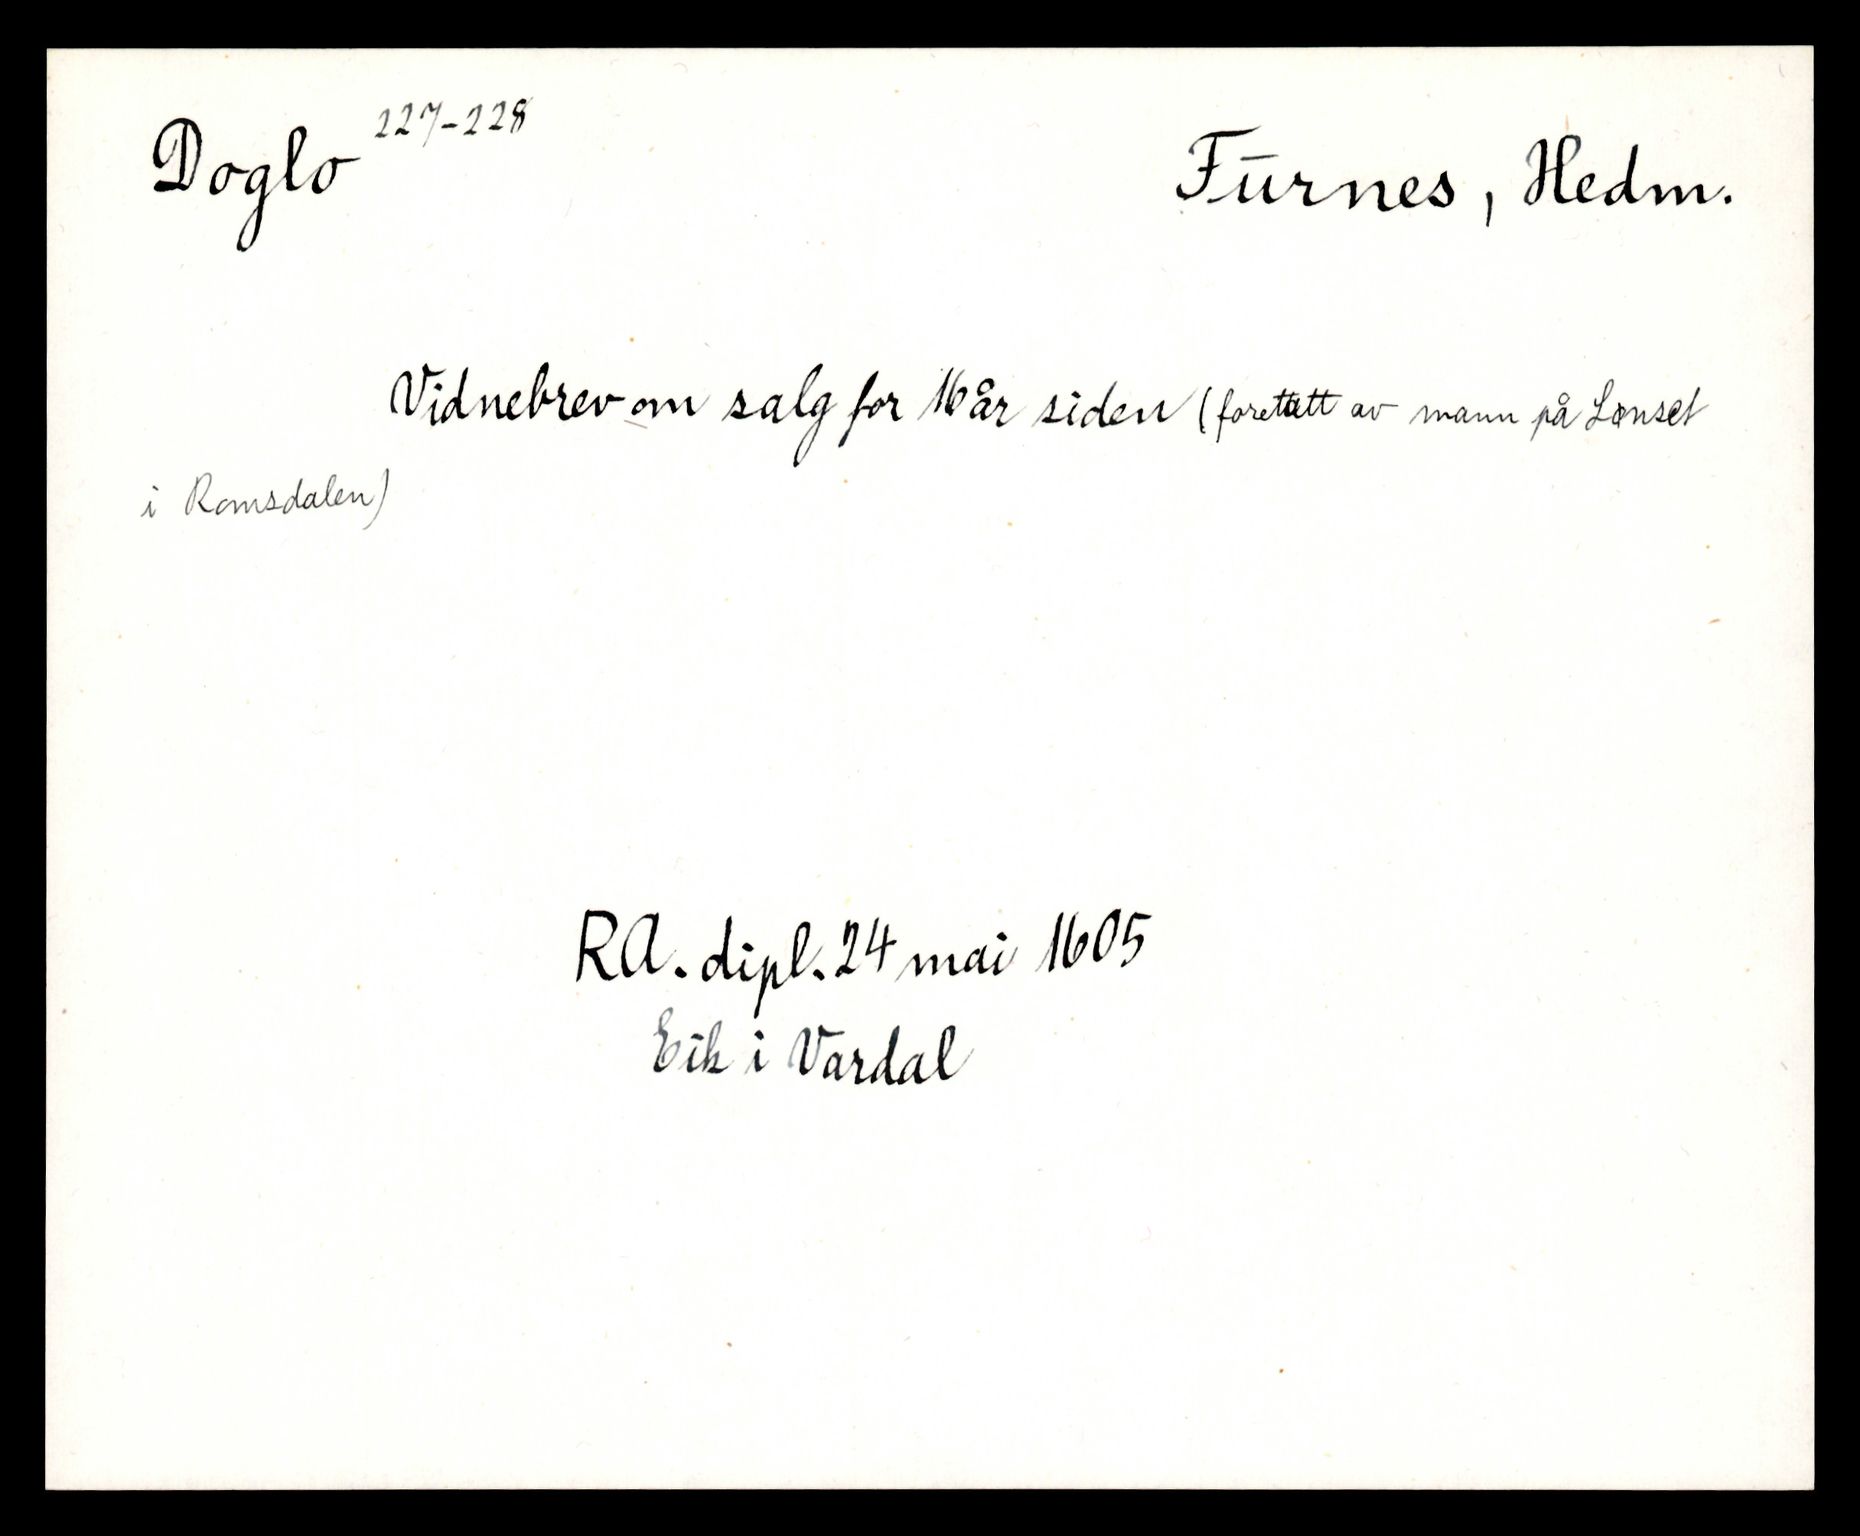 Doglo 227-228 Fūrnes, Hedm.
Vidnebrev om salg for 16 år siden (foretatt av mann på Lænset
i Romsdalen)
RA. dipl. 24 mai 1605
Eik i Vardal